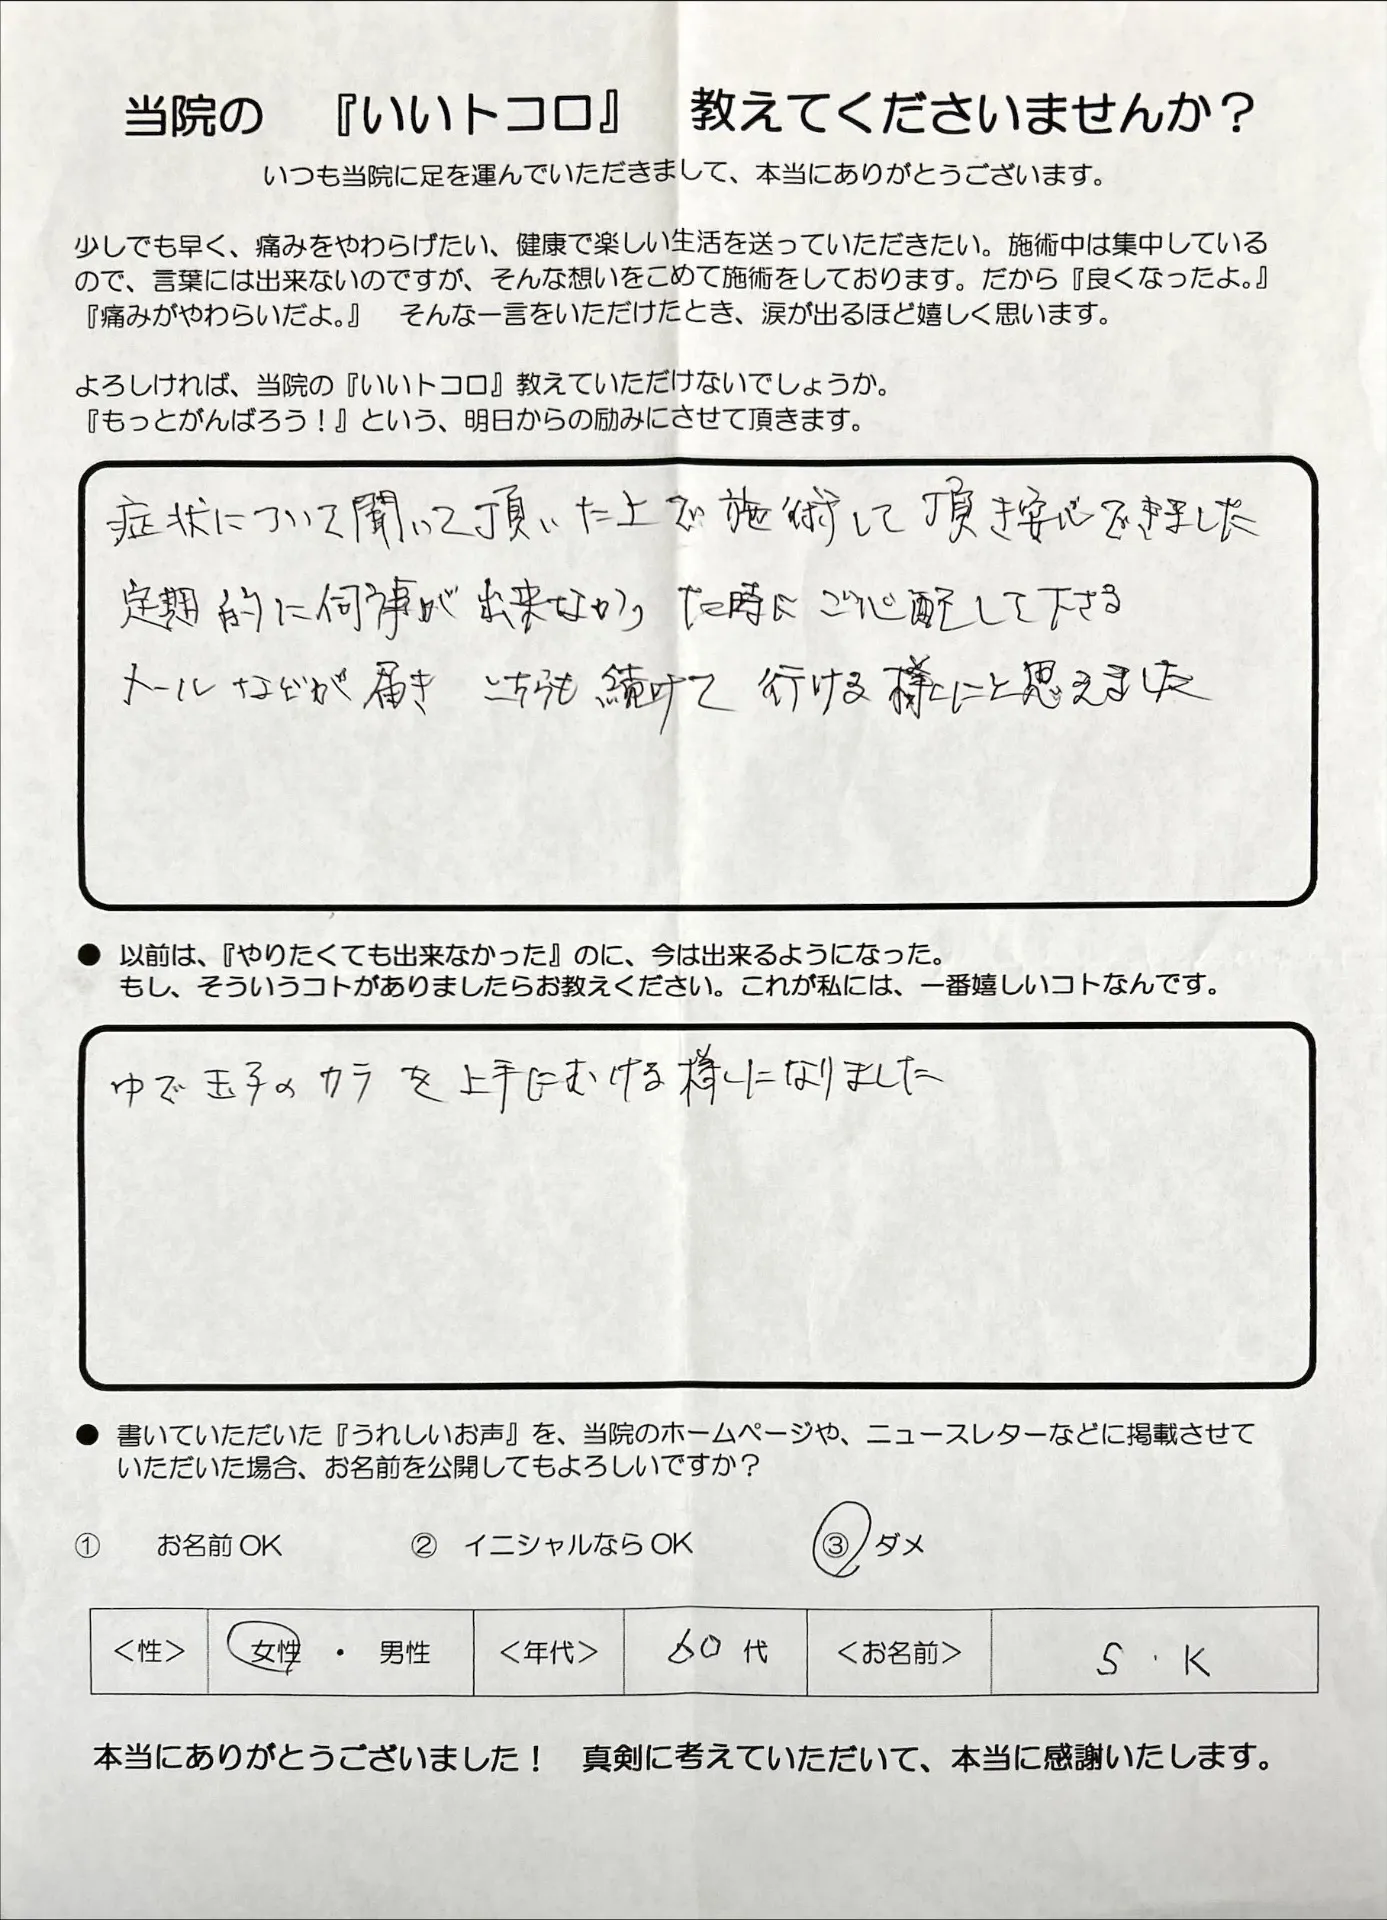 当院の 『いいトコロ』 教えてくださいませんか？
いつも当院に足を運んでいただきまして、本当にありがとうございます。
少しでも早く、痛みをやわらげたい、健康で楽しい生活を送っていただきたい。施術中は集中している
ので、言葉には出来ないのですが、そんな想いをこめて施術をしております。だから『良くなったよ。』
『痛みがやわらいだよ。』 そんな一言をいただけたとき、涙が出るほど嬉しく思います。
よろしければ、当院の『いいトコロ』教えていただけないでしょうか。
『もっとがんばろう！』という、明日からの励みにさせて頂きます。
症状について聞いて頂いた上で施術して頂き安心できました
定期的に伺う事が出来なかった時にご心配して下さる
メールなどが届き こちらも続けて行ける様にと思えました
● 以前は、『やりたくても出来なかった』のに、今は出来るようになった。
もし、そういうコトがありましたらお教えください。これが私には、一番嬉しいコトなんです。
ゆで玉子のカラを上手にむける様になりました
● 書いていただいた『うれしいお声』を、当院のホームページや、ニュースレターなどに掲載させて
いただいた場合、お名前を公開してもよろしいですか？
① お名前OK ② イニシャルならOK ③ ダメ
＜性＞ 女性 ・ 男性 ＜年代＞ 60代 ＜お名前＞ S・K
本当にありがとうございました！ 真剣に考えていただいて、本当に感謝いたします。